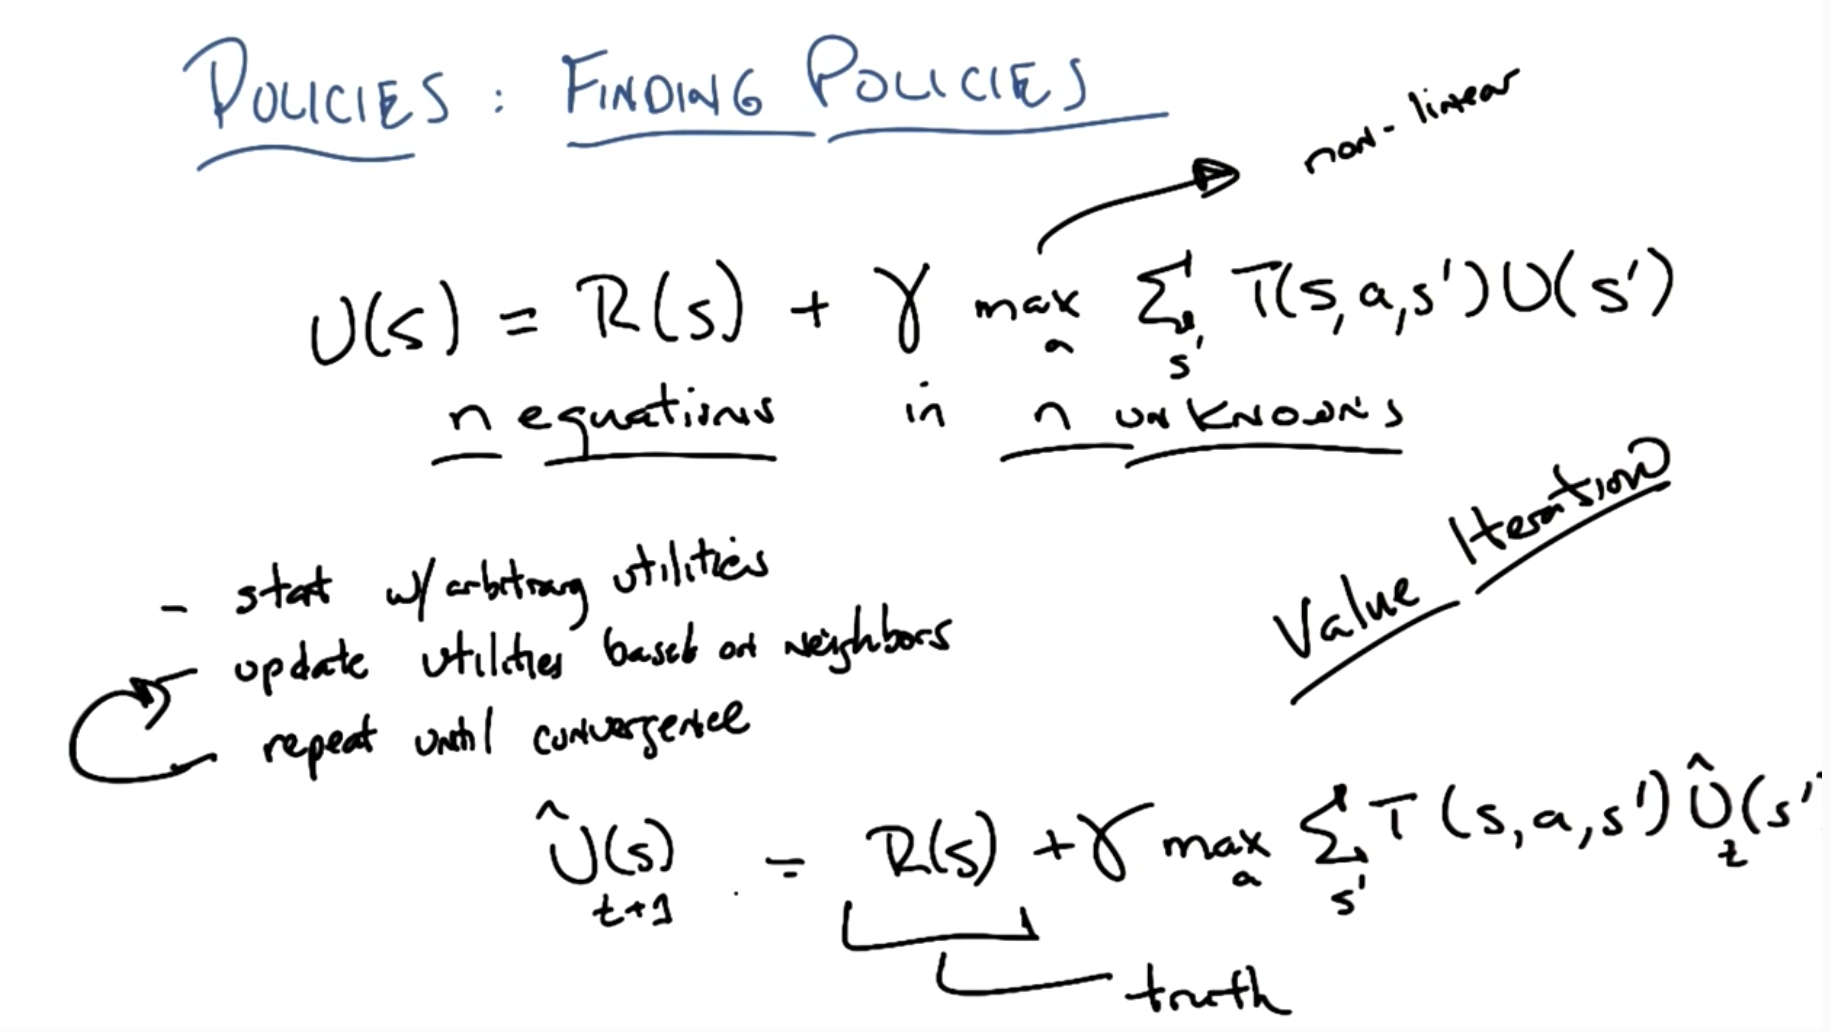 POLICIES: FINDING POLICIES
non-linear
U(s) = R(s) + γ max_a Σ_s' T(s,a,s')U(s')
n equations in n unknowns
Value Iteration
- start w/ arbitrary utilities
- update utilities based on neighbors
- repeat until convergence
Û_t+1(s) = R(s) + γ max_a Σ_s' T(s,a,s') Û_t(s'
truth